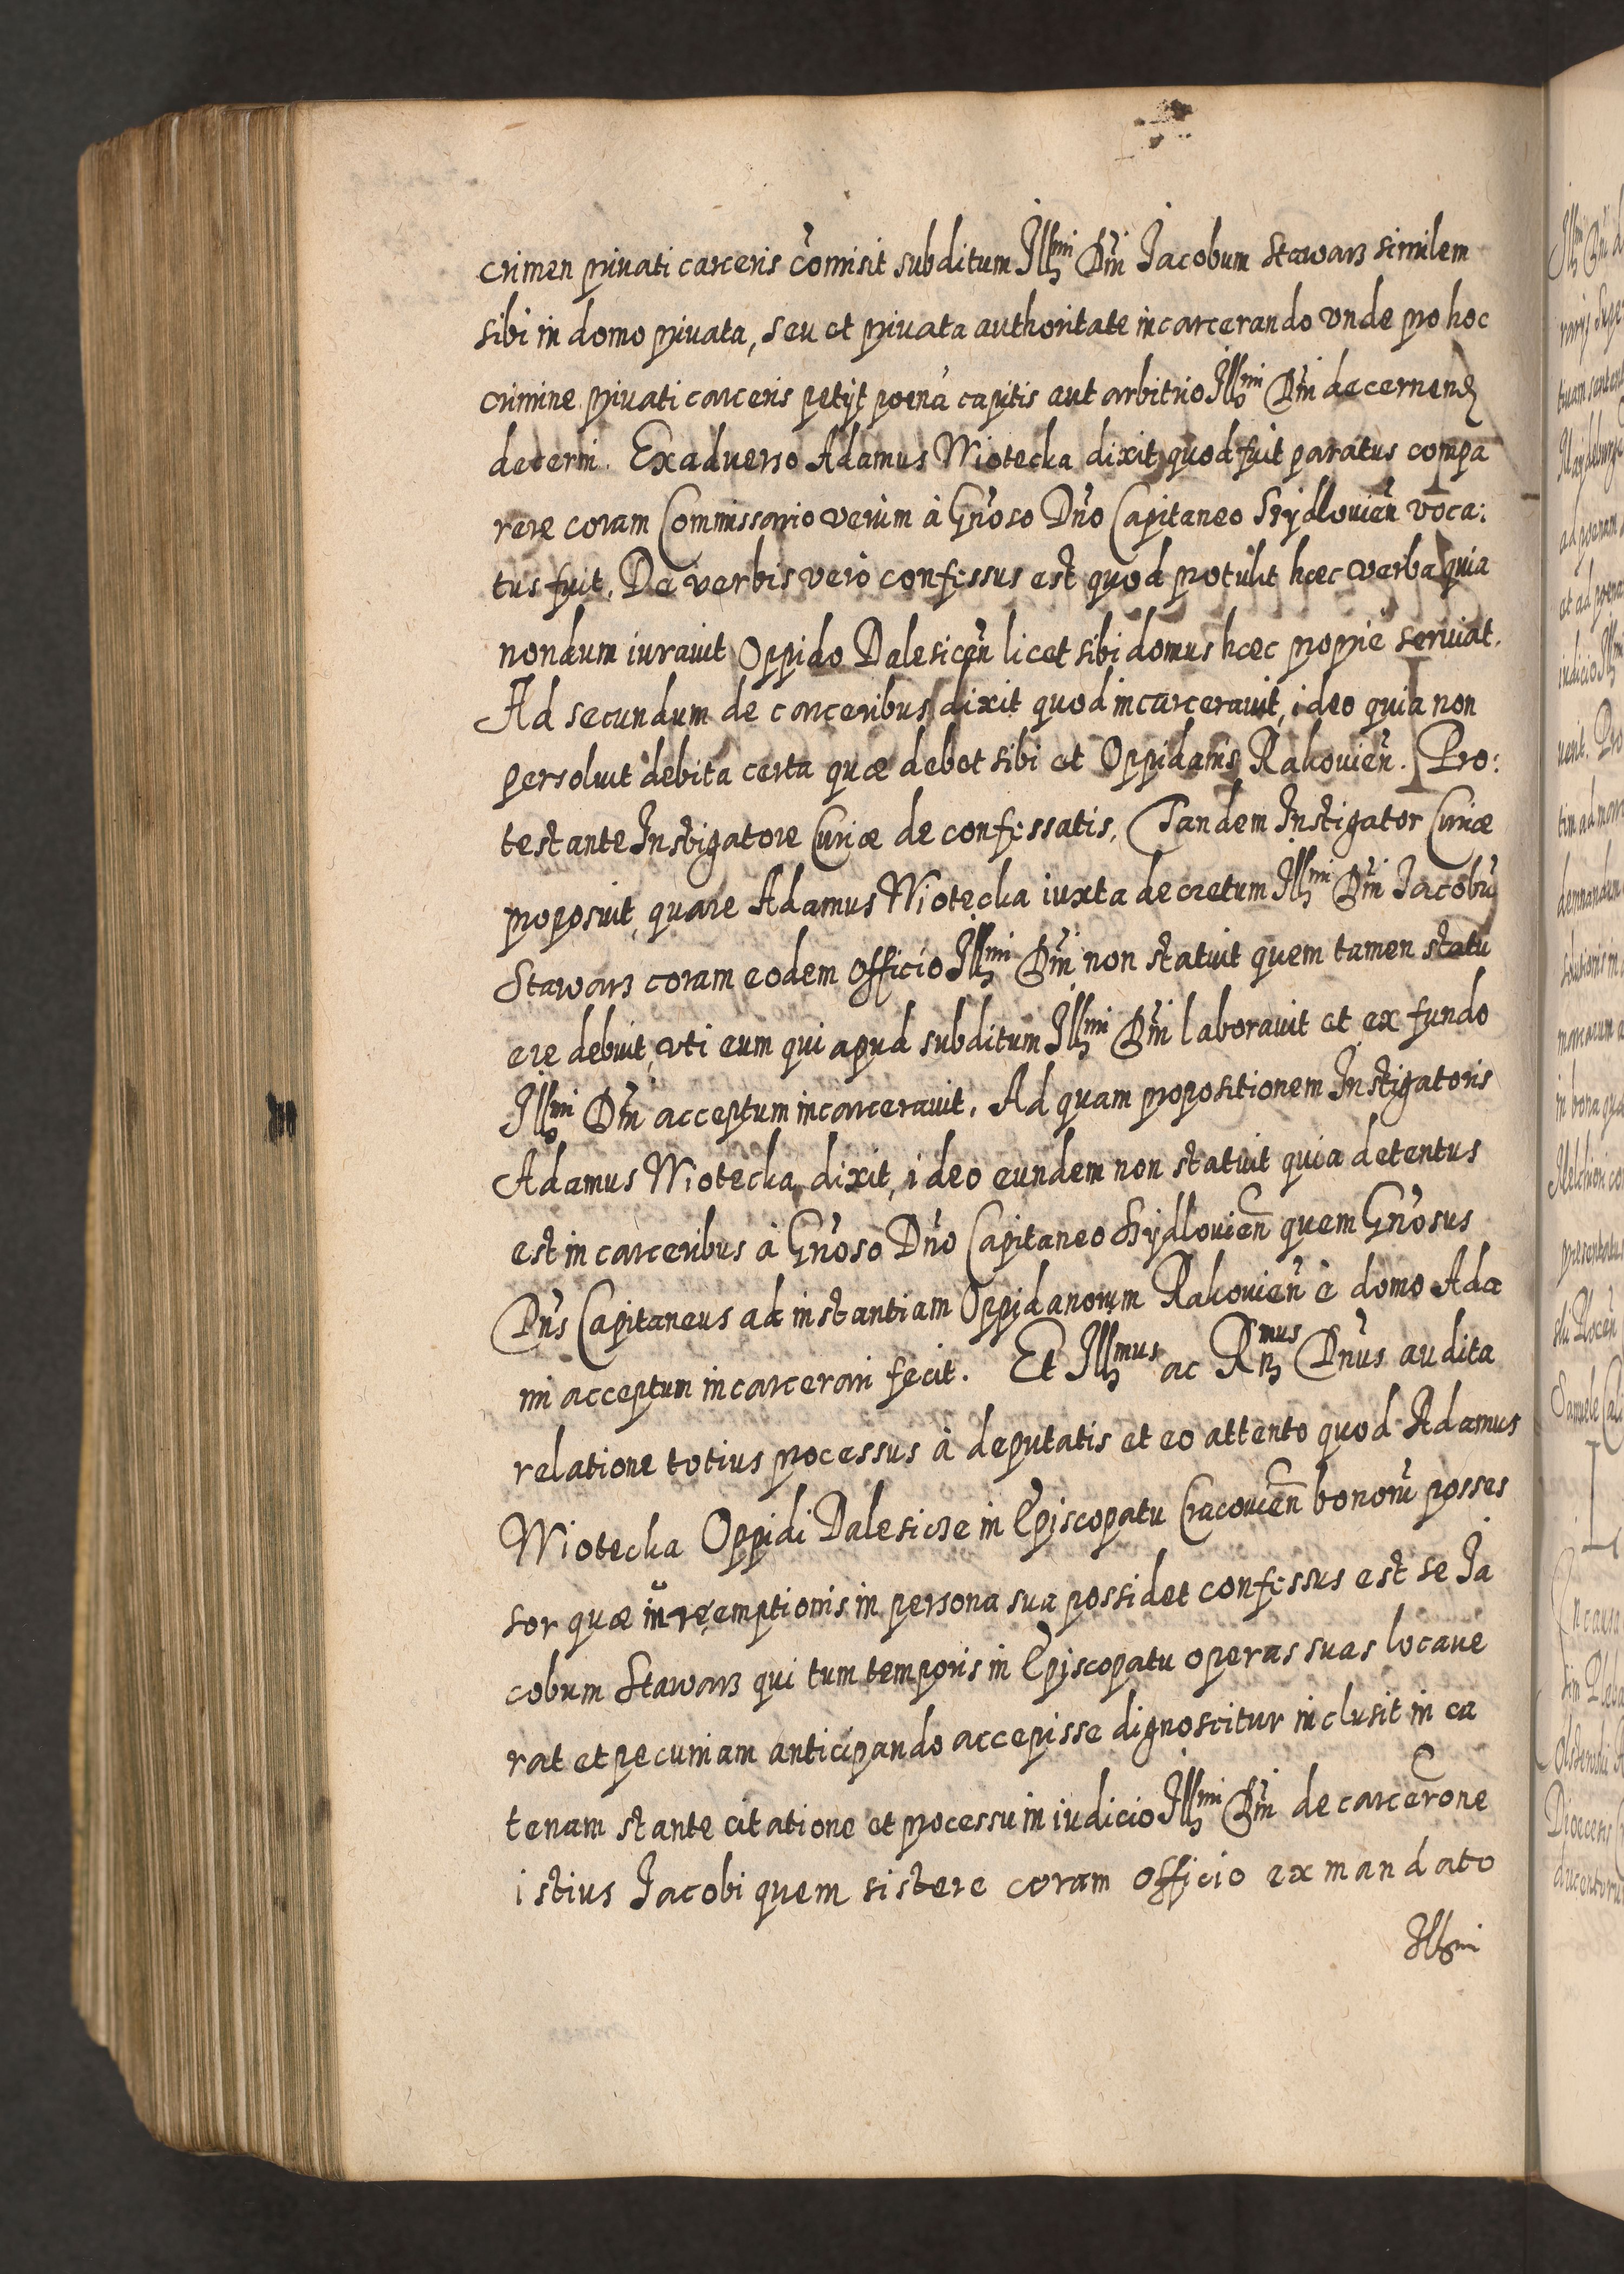 crimen priuati carceris com̃isit subditum Illmi Dm̃i Jacobum Stawarz similem
sibi in domo priuata, seu et priuata authoritate incarcerando vnde pro hoc
crimine priuati carceris petijt poenã capitis aut arbitrio Illmi Dm̃i decernend
decerni. Ex aduerso Adamus Wiotecka dixit quod fuit paratus compa
rere coram Commissario verùm à Gñoso Dño Capitaneo Srydlouien̄ voca:
tus fuit. De verbis verò confessus est quod protulit hæc verba quia
nondum iurauit Oppido Dalesicen̄ licet sibi domus hæc proprie seruiat.
Ad secundum de carceribus dixit quod incarcerauit, ideo quia non
persoluit debita certa quæ debet sibi et Oppidanis Rakouien̄. Pro:
testante Instigatore Curiæ de confessatis. Tandem Instigator Curiæ
proposuit, quare Adamus Wiotecka iuxta decretum Illmi Dm̃i Jacobũ
Stawarz coram eodem officio Illmi Dm̃i non statuit quem tamen statu
ere debuit, vti eum qui apud subditum Illmi Dm̃i laborauit et ex fundo
Illmi Dm̃i acceptum incarcerauit. Ad quam propositionem Instigatoris
Adamus Wiotecka dixit, ideo eundem non statuit quia detentus
est in carceribus à Gñoso Dño Capitaneo Srydlouien̄ quem Gñosus
Dñs Capitaneus ad instantiam Oppidanorum Rakouien̄ è domo Ada
mi acceptum incarcerari fecit. Et Illmus ac Rmus Dñus audita
relatione totius processus à deputatis et eo attento quod Adamus
Wiotecka Oppidi Dalesicze in Episcopatu Cracouien̄ bonorũ posses
sor quæ in reemptionis in persona sua possidet confessus est se Ja
cobum Stawarz qui tum temporis in Episcopatu operas suas locaue
rat et pecuniam anticipando accepisse dignoscitur inclusit in ca
tenam stante citatione et processu in iudicio Illmi Dm̃i de carcerõne
istius Jacobi quem sistere coram officio ex mandato
Illmi